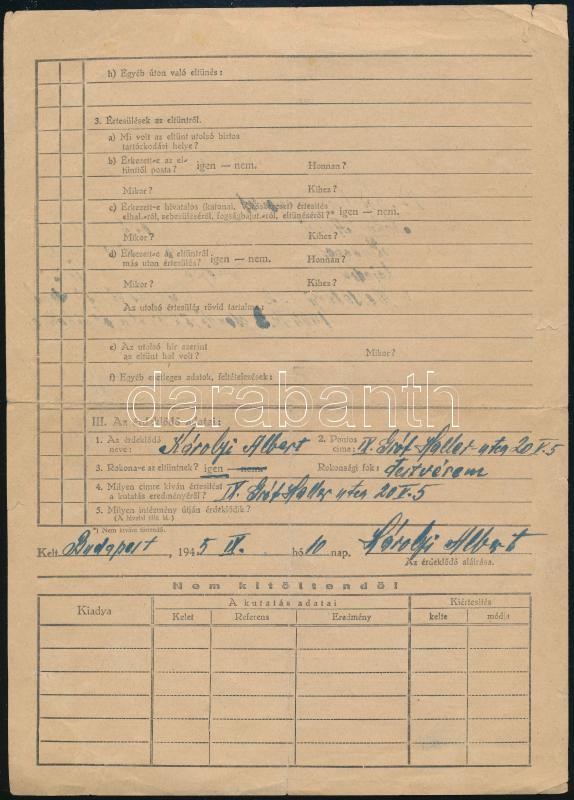 h) Egyéb úton való eltünés:
3. Értesülések az eltüntről.
a) Mi volt az eltünt utolsó biztos
tartózkodási helye?
b) Érkezett-e az el-
tünttől posta? igen — nem. Honnan?
Mikor? Kihez?
c) Érkezett-e hivatalos (katonai, értesítés
elhal.-ról, sebesüléséről, fogságbajut.-ról, eltünéséről?* igen — nem.
Mikor? Kihez?
d) Érkezett-e az eltüntről
más uton értesülés? igen — nem. Honnan?
Mikor? Kihez?
Az utolsó értesülés rövid tartalma:
e) Az utolsó hír szerint
az eltünt hol volt? Mikor?
f) Egyéb esetleges adatok, feltételezések:
darabanth
III. Az érdeklődő adatai:
1. Az érdeklődő
neve: Károlyi Albert
2. Pontos
címe: IX. Gróf Haller utca 20 V. 5
3. Rokona-e az eltüntnek? igen — nem. Rokonsági fok: testvérem
4. Milyen címre kíván értesítést
a kutatás eredményéről? IX. Gróf Haller utca 20 V. 5
5. Milyen intézmény útján érdeklődik?
*) Nem kívánt törlendő.
Kelt Budapest, 1945 IX. hó 10 nap. Károlyi Albert
Az érdeklődő aláírása.
Nem kitöltendő!
Kiadya
A kutatás adatai
Kiértesítés
Kelet Referens Eredmény kelte módja